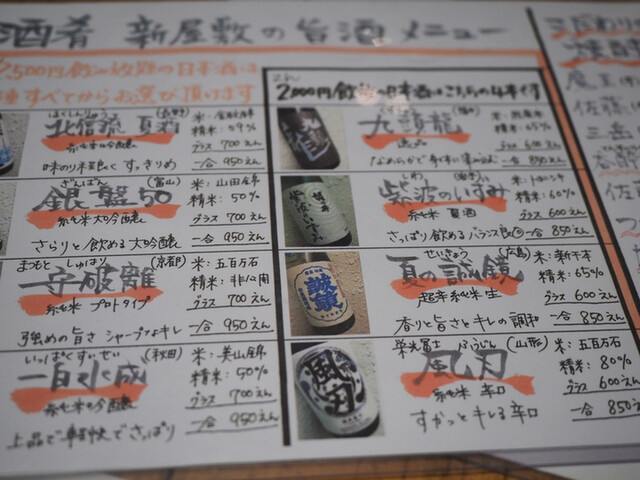 酒肴 新屋敷の旨酒メニュー
2,500円飲み放題の日本酒は
すべてからお選び頂けます
北信流 夏酒
(長野)
純米吟醸
精米:59%
グラス 700えん
味のり程良く すっきりめ
一合 950えん
ぎんばん
(富山)
銀盤50
純米大吟醸
米:山田錦
精米:50%
グラス 700えん
さらりと飲める大吟醸
一合 950えん
まつもと しゅはり
(京都)
守破離
純米 プロトタイプ
米:五百万石
精米:非公開
グラス 700えん
強めの旨さ シャープなキレ
一合 950えん
いっぱくすいせい
(秋田)
一白水成
純米吟醸
米:美山錦
精米:50%
グラス 700えん
上品で軽快でさっぱり
一合 950えん
2,000円飲み放の日本酒はこちらの4本です
九頭龍
精米:65%
グラス 600えん
一合 850えん
しわ
紫波のいずみ
純米 夏酒
米:トヨニシキ
精米:60%
グラス 600えん
さっぱり飲める バランス良◎
一合 850えん
せいきょう
(広島)
夏の誠鏡
超辛純米生
米:新千本
精米:65%
グラス 600えん
香りと旨さとキレの調和
一合 850えん
栄光冨士
(山形)
風刃
純米 辛口
米:五百万石
精米:80%
グラス 600えん
すかっとキレる辛口
一合 850えん
魔王
佐藤
三岳